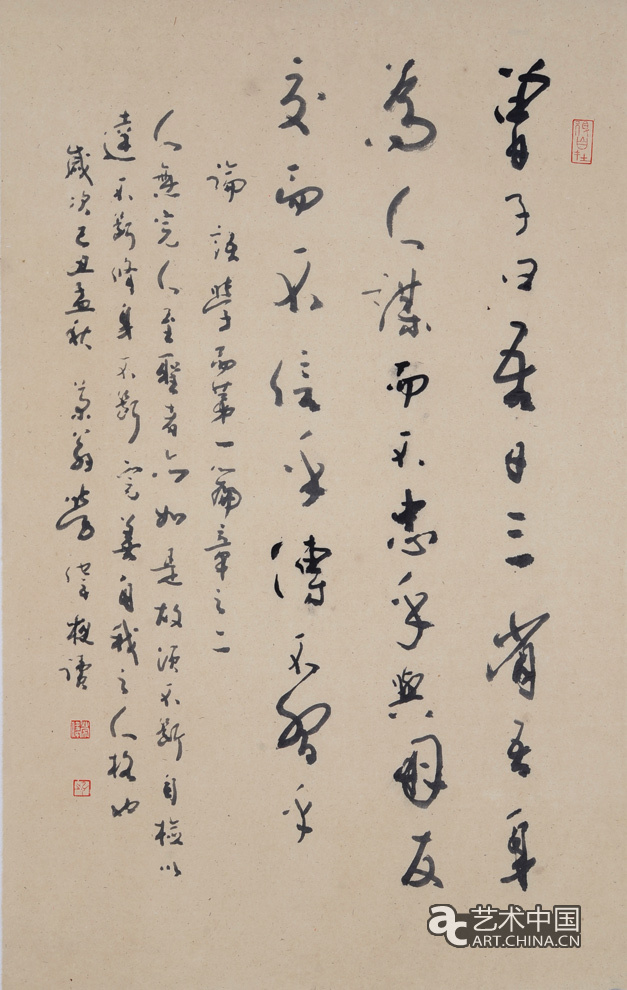 曾子曰吾日三省吾身
為人謀而不忠乎與朋友
交而不信乎傳不習乎
論語學而第一篇章之二
人無完人至聖者亦如是故須不斷自檢以
達不斷修身不斷完善自我之人格也
歲次己丑孟秋
艺术中国
ART.CHINA.CN